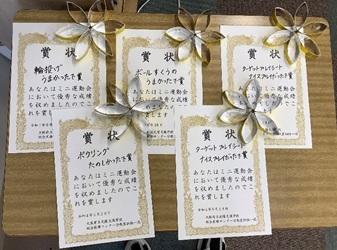 賞状
輪投げ
うまかったで賞
あなたはミニ運動会
において優秀な成績
を収めましたのでこ
れを賞します
賞状
ボールすくうの
うまかったで賞
あなたはミニ運動会
において優秀な成績
を収めましたのでこ
賞状
ターゲットプレイシート
ナイスプレイだったで賞
あなたはミニ運動会
において優秀な成績
を収めましたのでこ
れを賞します
賞状
ボウリング
たのしかったで賞
あなたはミニ運動会
において優秀な成績
を収めましたのでこ
れを賞します
賞状
ターゲットプレイシート
ナイスプレイだったで賞
あなたはミニ運動会
において優秀な成績
を収めましたのでこ
れを賞します